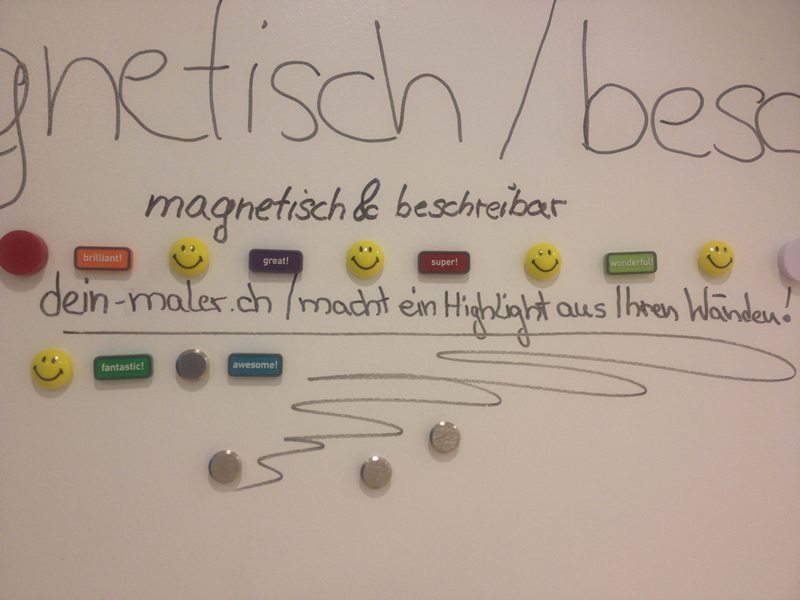 gnetisch / besc
magnetisch & beschreibar
brilliant! great! super! wonderful!
dein-maler.ch / macht ein Highlight aus Ihren Wänden!
fantastic! awesome!